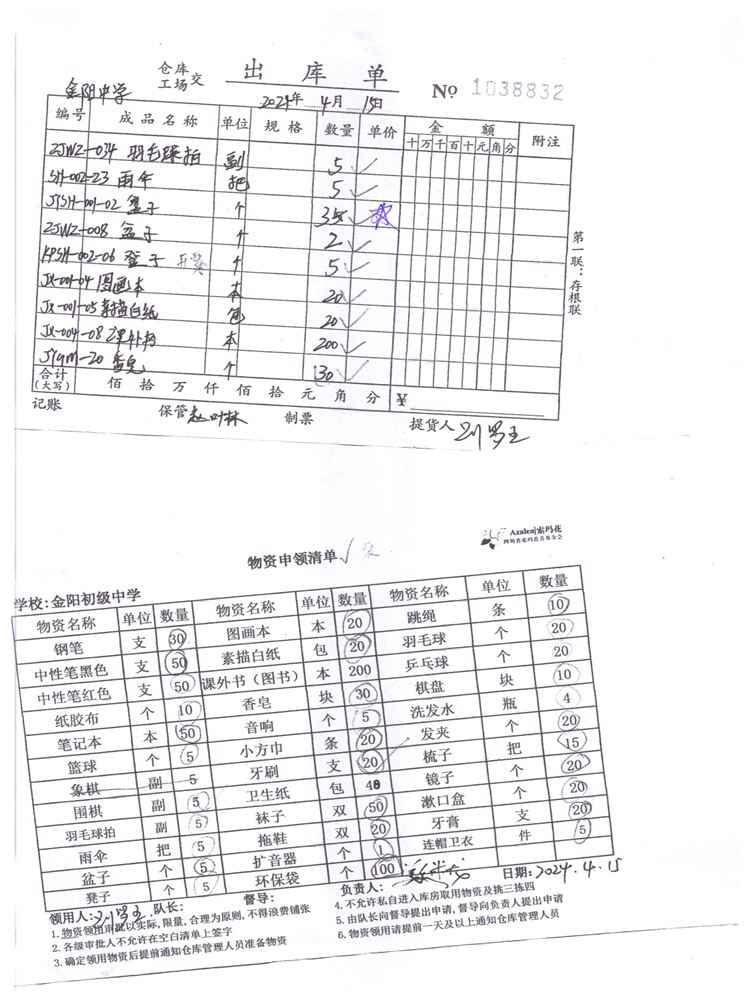 仓库
工场 交 出库单 No 1038832
金阳中学 2024年4月15日
编号 成品名称 单位 规格 数量 单价 金额 附注
十 万 千 百 十 元 角 分
ZJWZ-034 羽毛球拍 副 5
SH-002-23 雨伞 把 5
JYSH-001-02 盒子 个 35
ZJWZ-008 盆子 个 2
002-06 个 5
JX-001-04 图画本 本 20
JX-001-05 素描白纸 包 20
JX-004-08 课外书 本 200
-20 香皂 个 30
合计(大写) 佰 拾 万 仟 佰 拾 元 角 分 ¥
第一联:存根联
记账 保管 赵叶林 制票 提货人
Azalea|索玛花
四川省索玛慈善基金会
物资申领清单
学校:金阳初级中学
物资名称 单位 数量 物资名称 单位 数量 物资名称 单位 数量
钢笔 支 30 图画本 本 20 跳绳 条 10
中性笔黑色 支 50 素描白纸 包 20 羽毛球 个 20
中性笔红色 支 50 课外书(图书) 本 200 乒乓球 个 20
纸胶布 个 10 香皂 块 30 棋盘 块 10
笔记本 本 50 音响 个 5 洗发水 瓶 4
篮球 个 5 小方巾 条 20 发夹 个 20
象棋 副 5 牙刷 支 20 梳子 把 15
围棋 副 5 卫生纸 包 48 镜子 个 20
羽毛球拍 副 5 袜子 双 50 漱口盒 个 20
雨伞 把 5 拖鞋 双 20 牙膏 支 20
盆子 个 5 扩音器 个 1 连帽卫衣 件 5
凳子 个 5 环保袋 个 100
领用人: 队长: 督导: 负责人: 日期:2024.4.15
1.物资领用审批以实际,限量,合理为原则,不得浪费铺张
2.各级审批人不允许在空白清单上签字
3.确定领用物资后提前通知仓库管理人员准备物资
4.不允许私自进入库房取用物资及挑三拣四
5.由队长向督导提出申请,督导向负责人提出申请
6.物资领用请提前一天及以上通知仓库管理人员